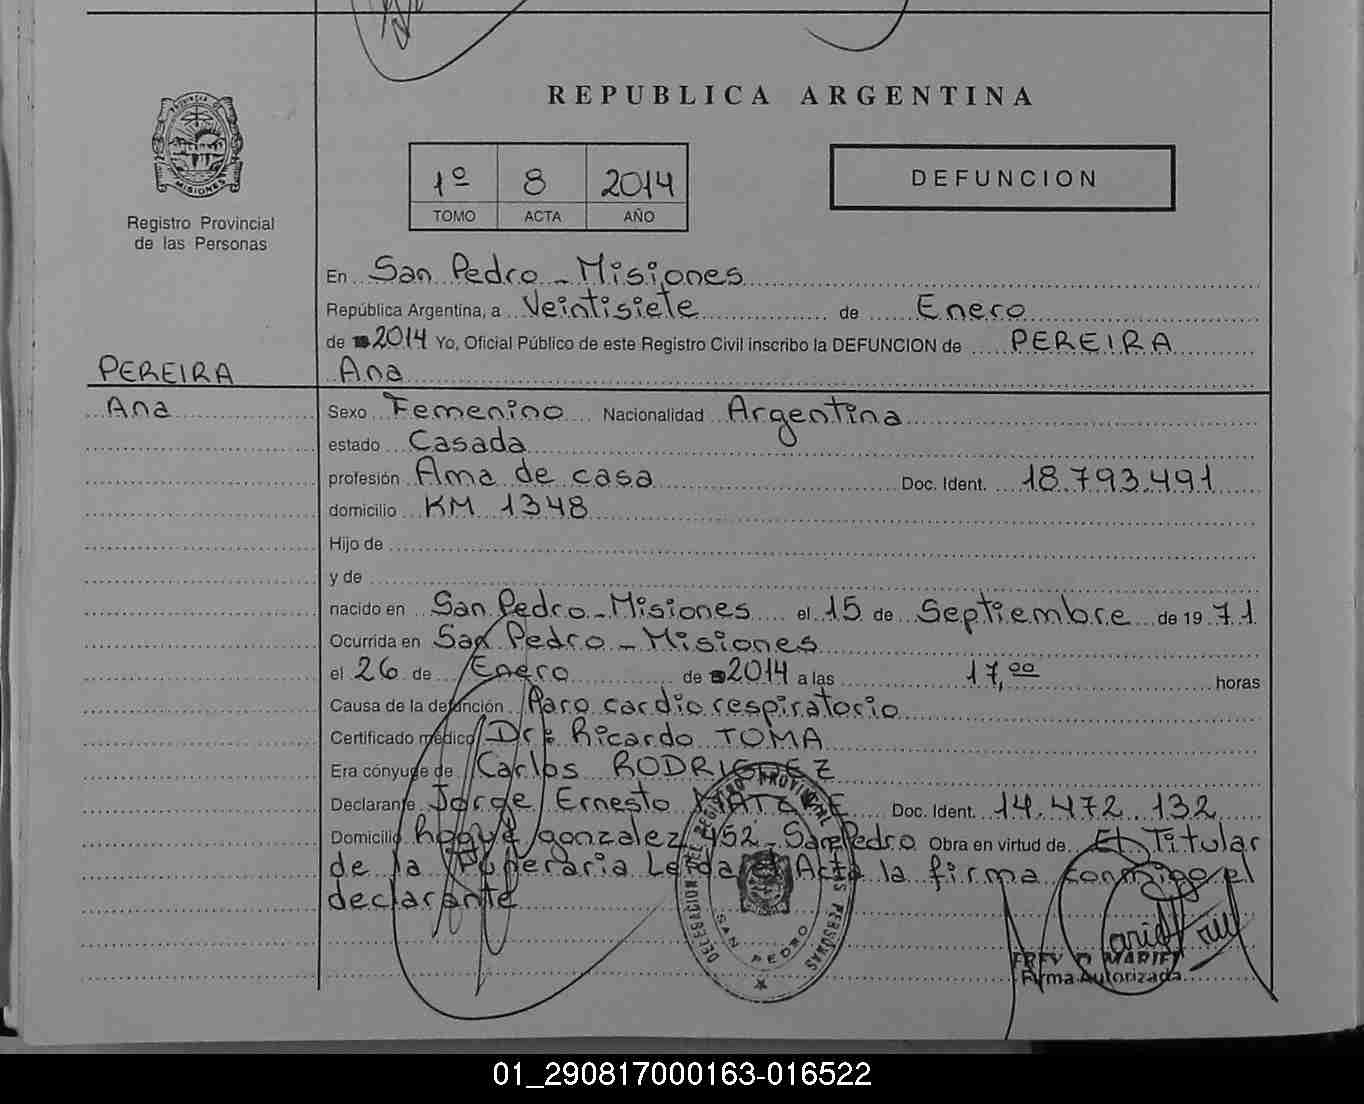 REPUBLICA ARGENTINA
PROVINCIA DE
MISIONES
Registro Provincial
de las Personas
1º 8 2014
TOMO ACTA AÑO
DEFUNCION
En San Pedro - Misiones
República Argentina, a Veintisiete de Enero
de 2014 Yo, Oficial Público de este Registro Civil inscribo la DEFUNCION de PEREIRA
Ana
PEREIRA
Ana
Sexo Femenino Nacionalidad Argentina
estado Casada
profesión Ama de casa Doc. Ident. 18.793.491
domicilio KM 1348
Hijo de
y de
nacido en San Pedro - Misiones el 15 de Septiembre de 1971
Ocurrida en San Pedro - Misiones
el 26 de Enero de 2014 a las 17,00 horas
Causa de la defunción Paro cardio respiratorio
Certificado médico Dr: Ricardo TOMA
Era cónyuge de Carlos RODRIGUEZ
Declarante Jorge Ernesto Doc. Ident. 14.472.132
Domicilio Roque gonzalez 452 - San Pedro Obra en virtud de El Titular
de la Funeraria Leida el Acta la firma conmigo el
declarante
DELEGACION DEL REGISTRO PROVINCIAL DE LAS PERSONAS
SAN PEDRO
Firma Autorizada
01_290817000163-016522